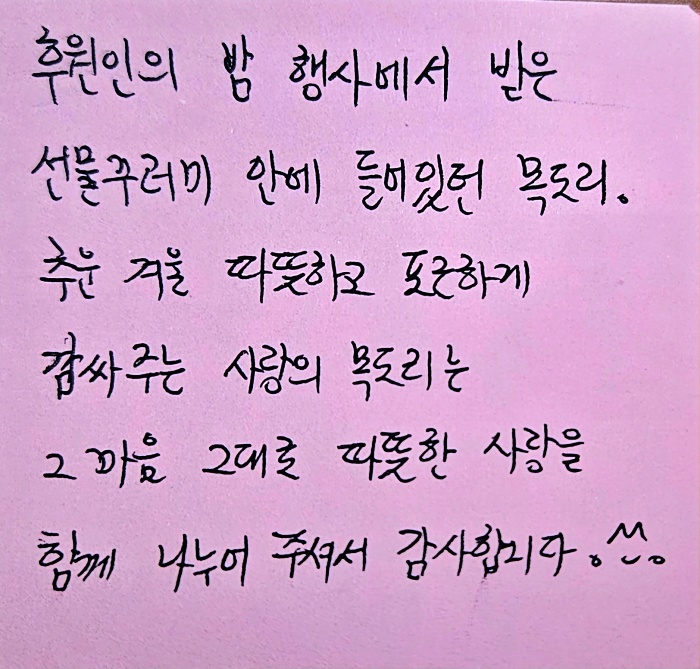 후원인의 밤 행사에서 받은
선물꾸러미 안에 들어있던 목도리.
추운 겨울 따뜻하고 포근하게
감싸주는 사랑의 목도리는
그 마음 그대로 따뜻한 사랑을
함께 나누어 주셔서 감사합니다.